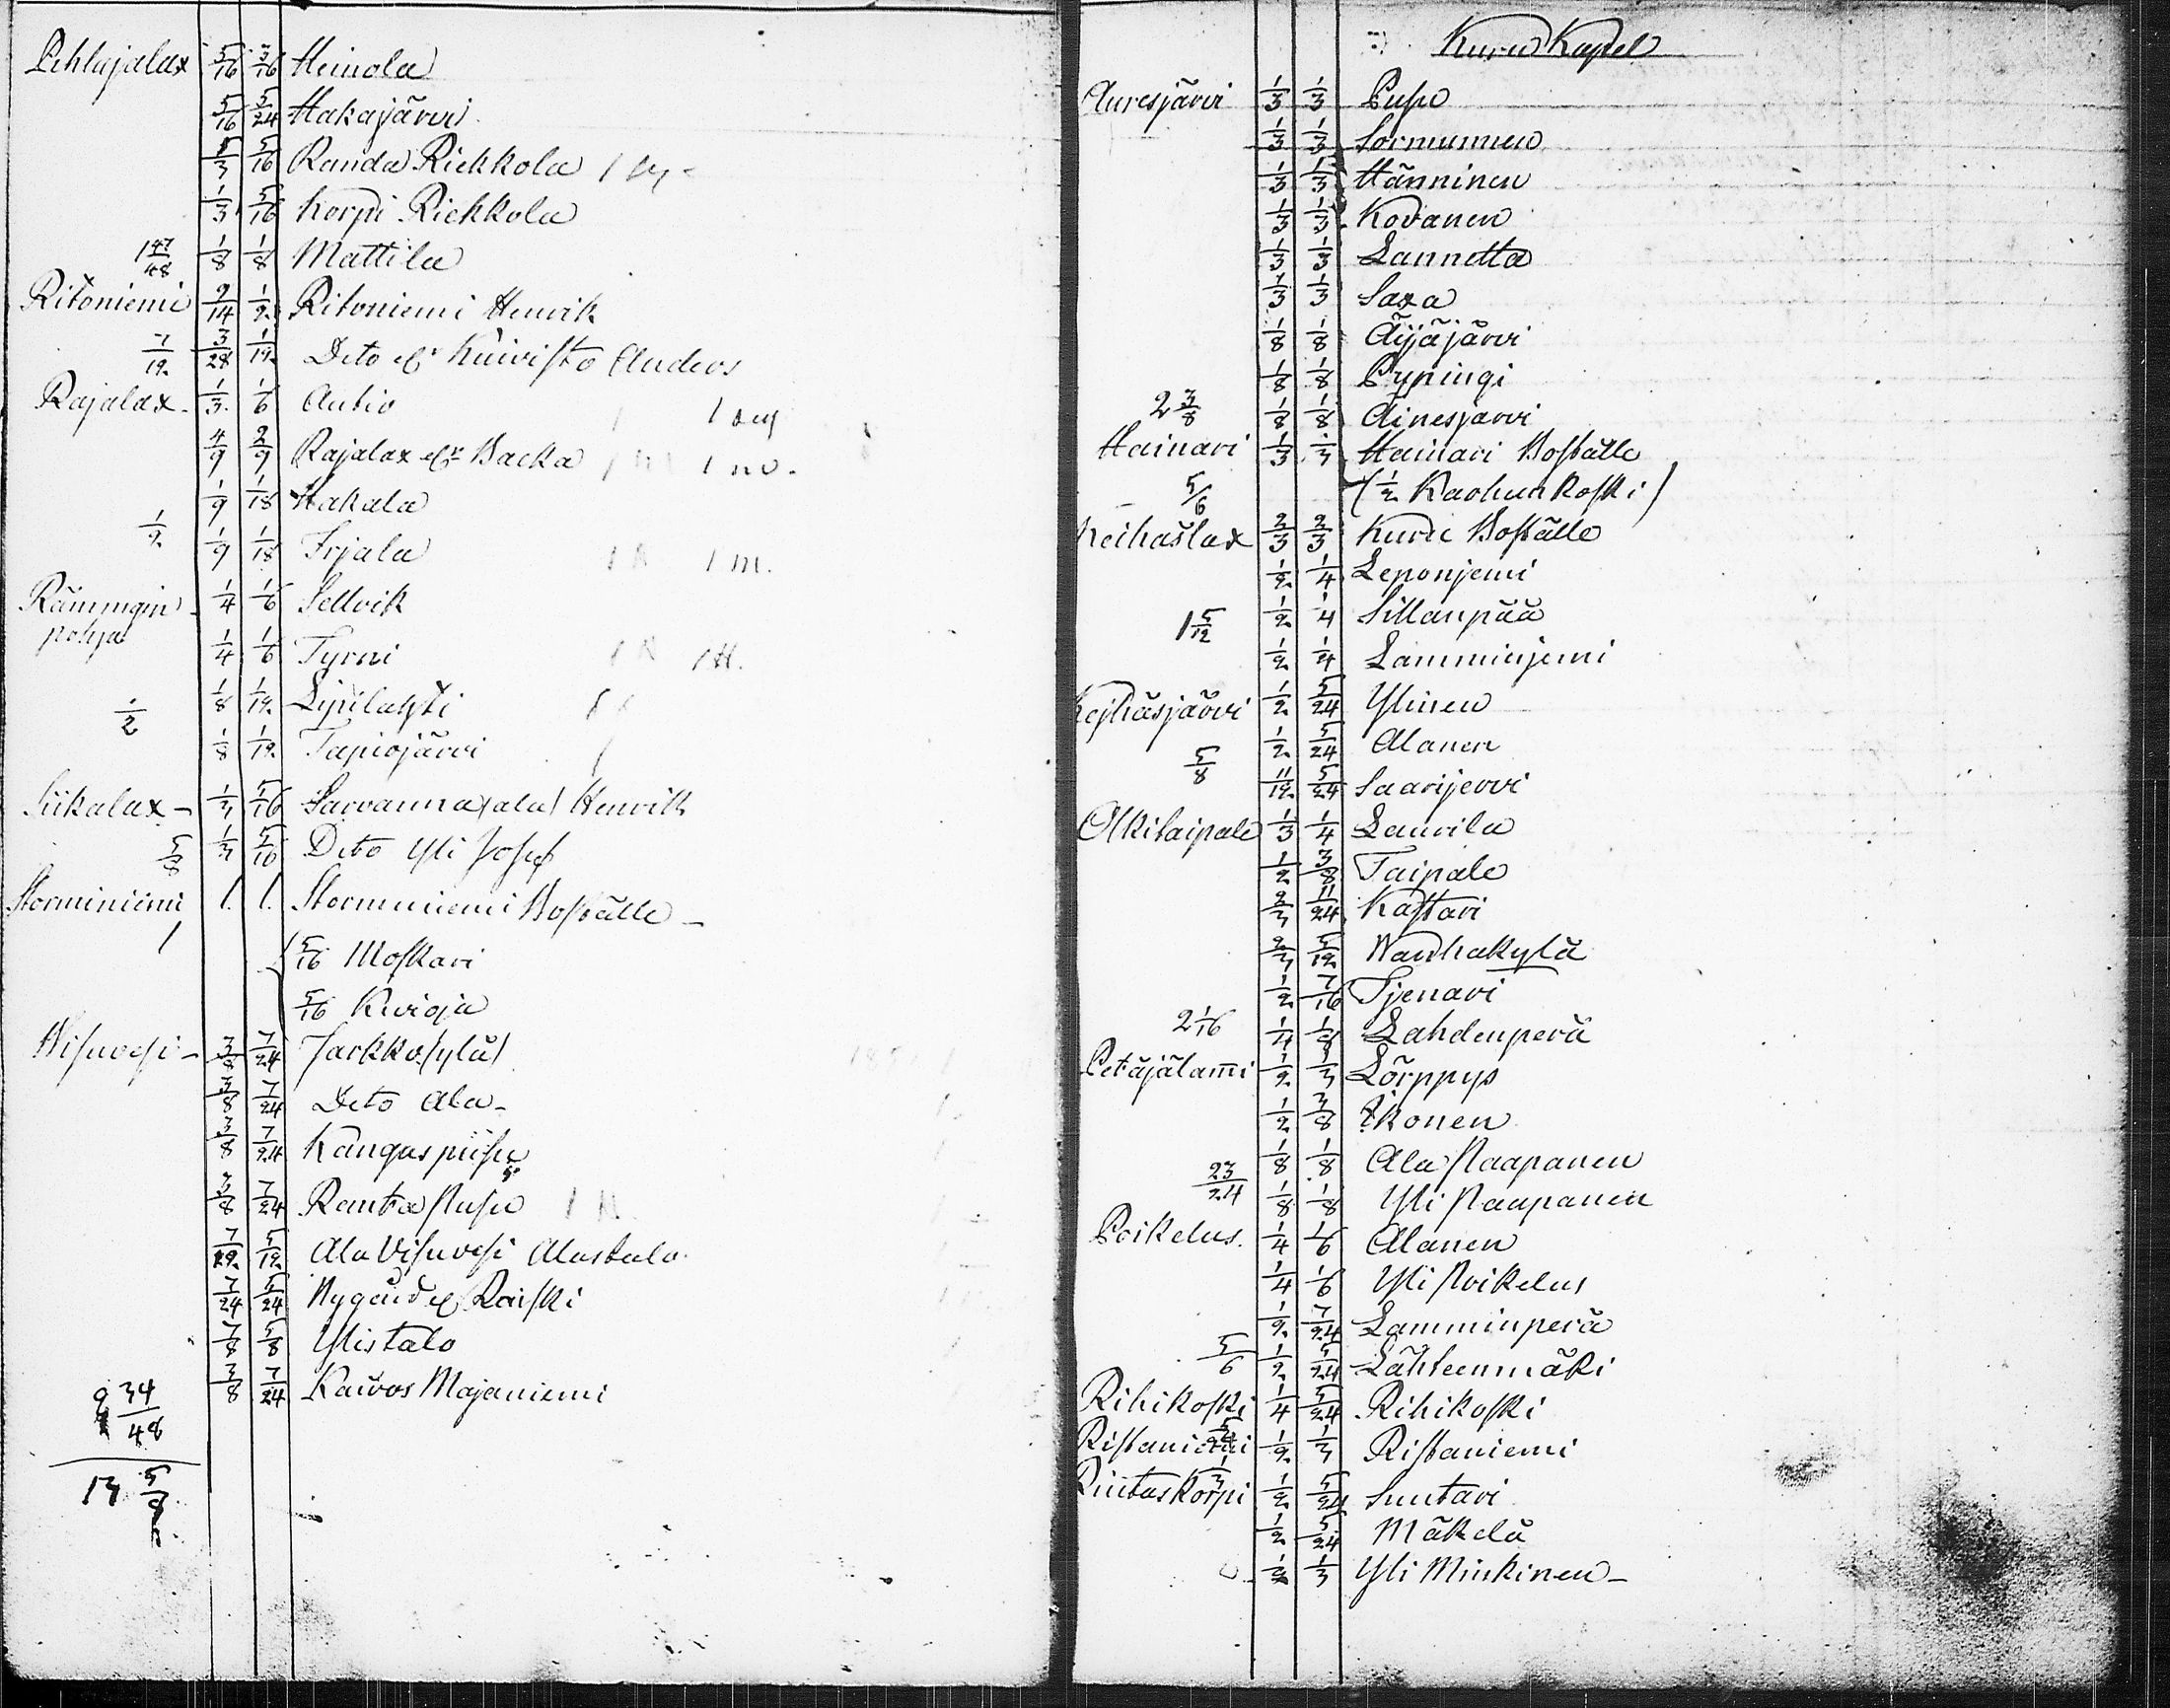 Pihlajalax 5/16 3/16 Heinola
5/16 5/24 Hakajärvi
1/3 5/16 Randa Riekkola
1/3 5/16 Korpi Riekkola
1 47/48 1/8 1/8 Mattila
Ritoniemi 9/14 1/2 Ritoniemi Henrik
7/12 3/28 1/12 Dito el. Kuivisto Anders
Rajalax 1/3 1/6 Autio
4/9 2/9 Rajalax el. Backa
1/9 1/18 Hakala
1/2 1/9 1/18 Irjala 1 m.
Rämmgin 1/4 1/6 Sellvik
pohja
1/4 1/6 Tyrni 1 H.
1/8 1/12 Lipilahti
1/2
1/8 1/12 Tapiojärvi
Siikalax 1/3 5/16 Sarvanna (ala) Henrik
5/8 1/3 5/16 Dito Yli Josef
Storminiemi 1. 1. Storminiemi Boställe
1
5/16 Moskari
5/16 Kivioja
Wisuvesi 3/8 7/24 Jarkko (ylä)
3/8 7/24 Dito Ala
3/8 7/24 Kangaspiispu
3/8 7/24 Rantapispu
7/12 5/12 Ala Visuvesi Alastalo
7/24 5/24 Nygård el. Raiski
7/8 5/8 Ylistalo
3/8 7/24 Kaivos Majaniemi
9 34/48
13 5/8
Kuru Kapel
Auresjärvi 1/3 1/3 Pispo
1/3 1/3 Sormunnen
1/3 1/3 Hänninen
1/3 1/3 Kovanen
1/3 1/3 Lannetta
1/3 1/3 Saxa
1/8 1/8 Äijäjärvi
1/8 1/8 Pyningi
2 3/8 1/8 1/8 Ainesjärvi
Hainari 1/3 1/3 Hainari Boställe
5/6 (1/2 Kaohunkoski)
Keihäslax 2/3 2/3 Kuru Boställe
1/2 1/4 Leponjemi
1 5/12 1/2 1/4 Sillanpää
1/2 1/4 Lamminjemi
Kejhäsjärvi 1/2 5/24 Ylinen
1/2 5/24 Alanen
5/8 11/12 5/24 Saarijervi
Olkitaipale 1/3 1/4 Laurila
1/2 3/8 Taipale
2/3 11/24 Kastari
2/3 5/12 Wanhakylä
1/2 7/16 Tjenari
2 1/16 1/4 1/8 Lahdenperä
Petäjälami 1/2 1/3 Lörppys
1/2 3/8 Ikonen
1/8 1/8 Ala Naapanen
23/24 1/8 1/8 Yli Naapanen
Poikelus 1/4 1/6 Alanen
1/4 1/6 Yli Poikelus
1/2 7/24 Lamminperä
5/6 1/2 5/24 Lähteenmäki
Rihikoski 1/4 5/24 Rihikoski
5/24
Ristaniemi 1/2 1/3 Ristaniemi
1/3
Riutaskorpi 1/2 5/24 Suutari
1/2 5/24 Mäkelä
1/2 1/3 Yli Minkinen